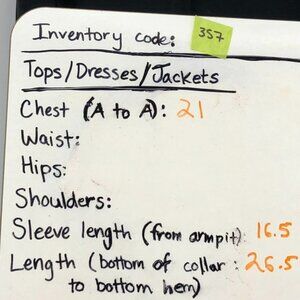 Inventory code: 357
Tops/Dresses/Jackets
Chest (A to A): 21
Waist:
Hips:
Shoulders:
Sleeve length (from armpit): 16.5
Length (bottom of collar : 26.5
to bottom hem)